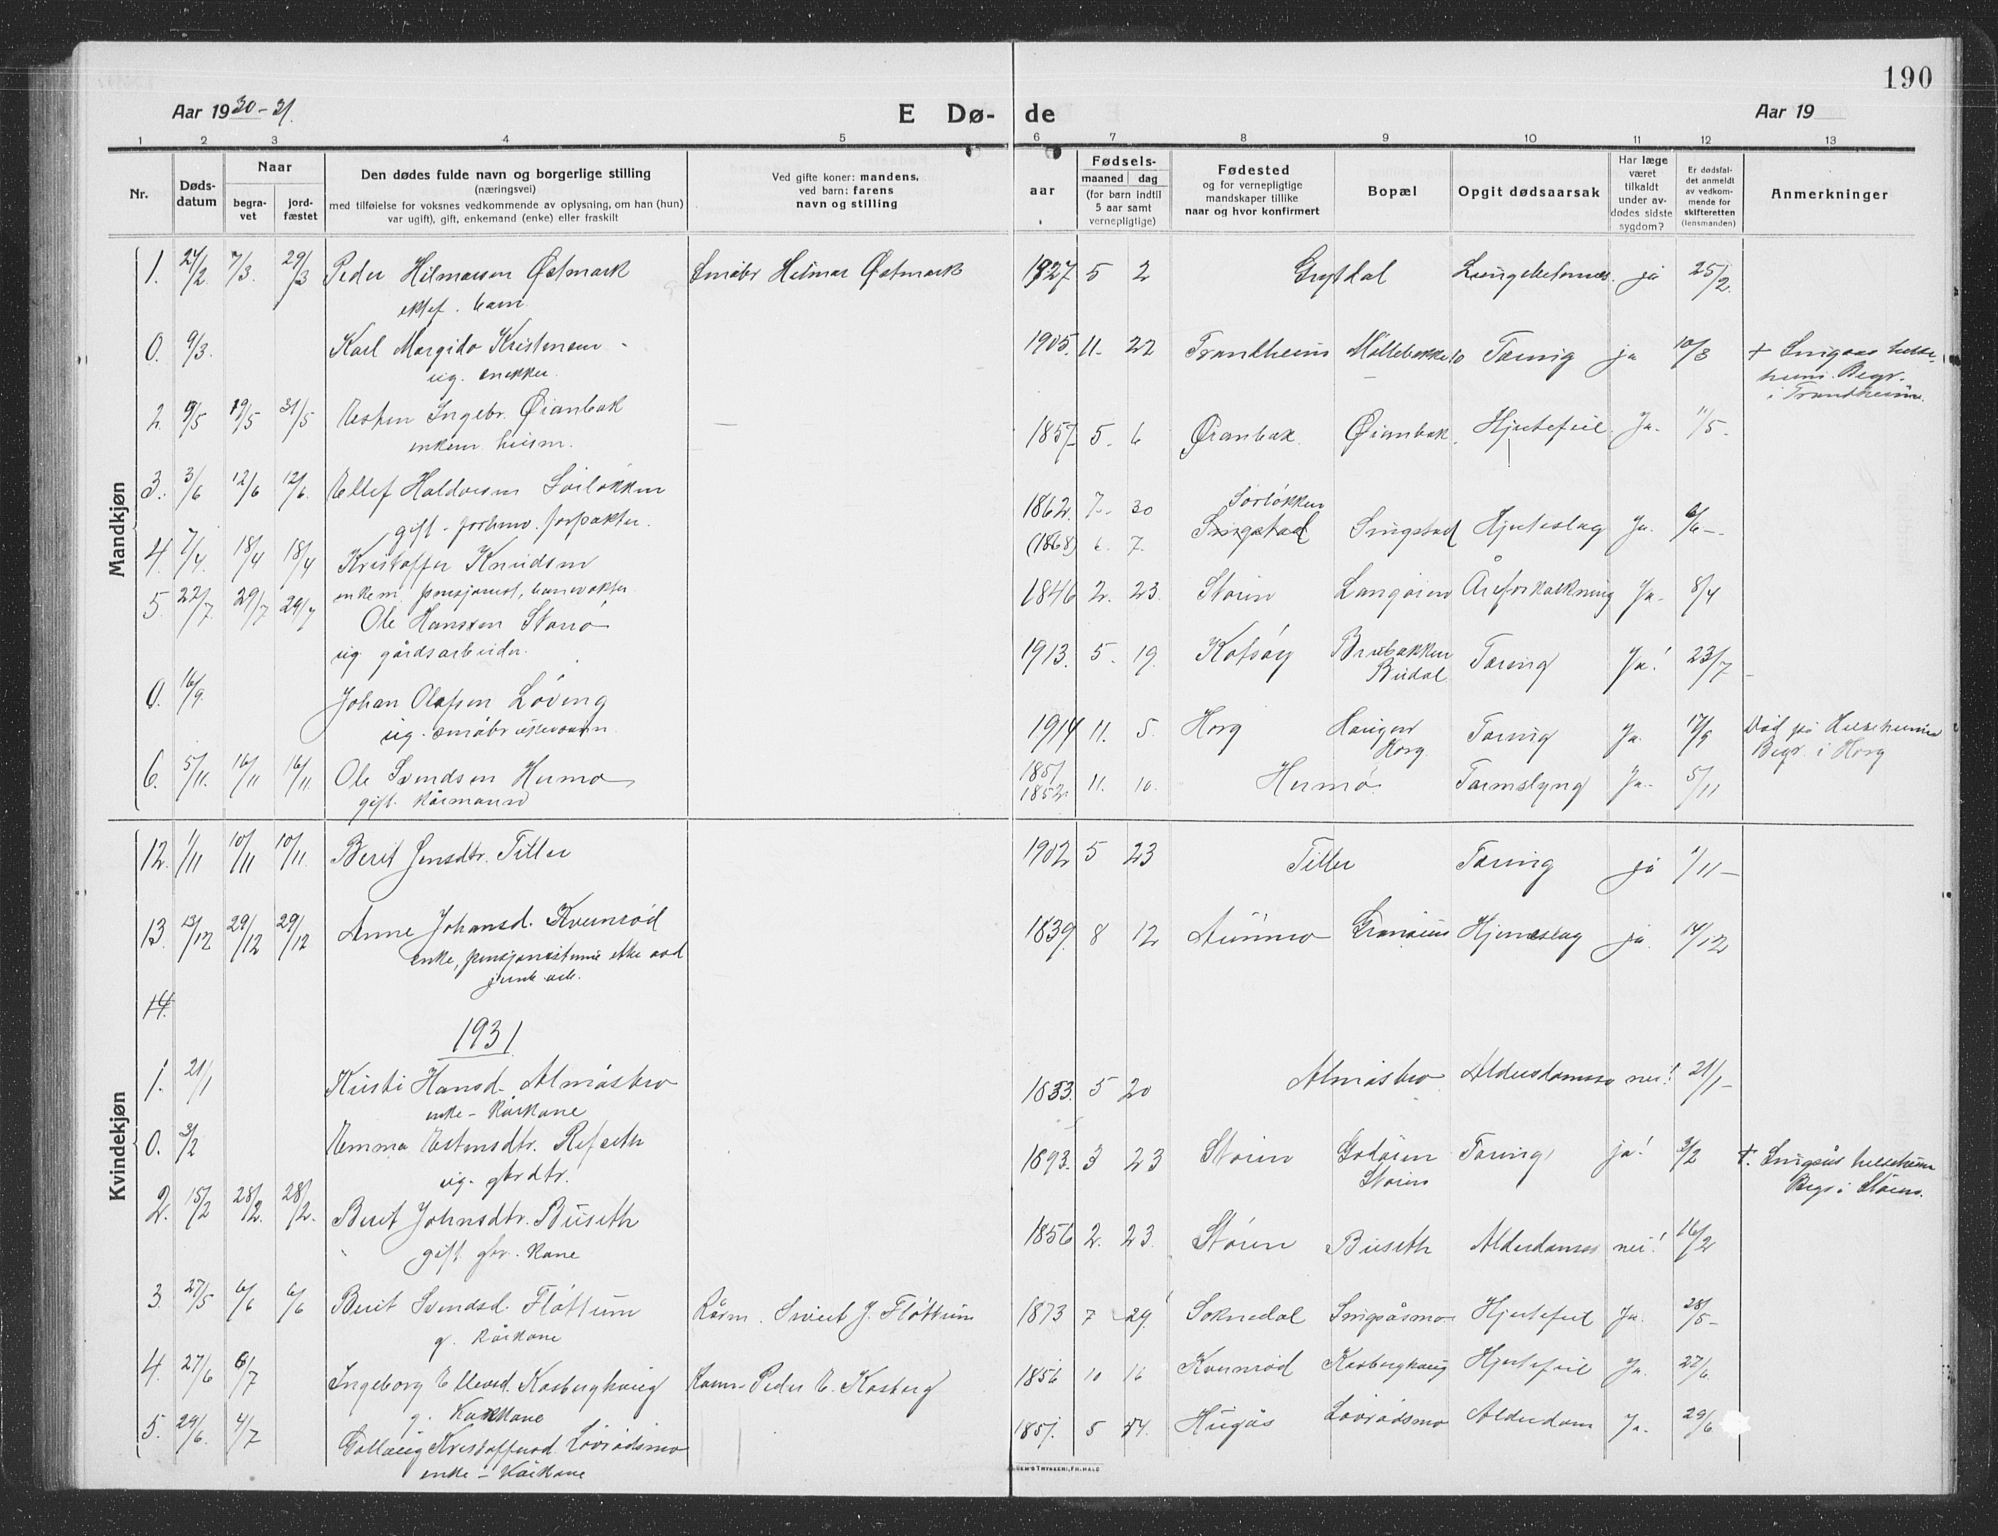 190
Aar 1930-31.
E Dø-
de
Aar 19
1 2 3 4 5 6 7 8 9 10 11 12 13
Nr.
Døds-
datum
Naar
begra-
vet
jord-
fæstet
Den dødes fulde navn og borgerlige stilling
(næringsvei)
med tilføielse for voksnes vedkommende av oplysning, om han (hun)
var ugift), gift, enkemand (enke) eller fraskilt
Ved gifte koner: mandens,
ved barn: farens
navn og stilling
aar
Fødsels-
maaned dag
(for barn indtil
5 aar samt
vernepligtige)
Fødested
og for vernepligtige
mandskaper tillike
naar og hvor konfirmert
Bopæl
Opgit dødsaarsak
Har læge
været
tilkaldt
under av-
dødes sidste
sygdom?
Er dødsfal-
det anmeldt
av vedkom-
mende for
skifteretten
(lensmanden)
Anmerkninger
Mandkjøn
1. 24/2 7/3. 29/3 Peder Hilmarsen Østmark Småbr Hilmar Østmark 1927 5 2 ja 25/2.
ektef. barn
0. 9/3. Karl Margido Kristensen 1905. 11. 22 Trondheim Møllebakke 10 Tæring ja 10/3 + Singsås helse-
ug. snekker heim. Begr.
i Trondheim.
2. 9/5 19/5 31/5 Esten Ingebr. Øianbak 1857 5. 6 Øianbak Øianbak Hjertefeil Ja. 11/5.
enkem. husm.
3. 3/6 12/6 12/6. Ellef Haldorsen Sørløkken 1862. 7. 30 Sørløkken
gift - forhenv. forpakter. (1868) 6. 7. Singstad Singstad Hjerteslag Ja. 6/6 -
4. 7/4. 18/4 18/4 Kristoffer Knudsen 1846 2. 23 Støren Langøien Åreforkalkning Ja. 8/4
enkem. pensjonist, banevokter
5. 22/7. 29/7 29/7 Ole Hanssen Storrø 1913. 5. 19. Kotsøy Brubakken Tæring Ja! 23/7
ug gårdsarbeider. Budal
0. 16/9. Johan Olafsen Løvseng 1914 11. 5. Horg Haugen Tæring Ja. 17/9 Død på Helseheimen
ug. småbrukersønn. Horg Begr. i Horg
6. 5/11. 16/11 16/11 Ole Svendsen Hermo 1851 1852 11. 10. Hermo Tarmslyng Ja. 5/11
gift. kårmann
Kvindekjøn
12. 1/11 10/11 10/11. Berit Jensdtr. Tiller 1902 5 23 Tiller Tæring ja 1/11 -
13. 13/12 29/12 29/12 Anne Johansd. Kvernrød 1839. 8 12 Granøien Hjerneslag ja 14/12
enke, pensjonistinne
14.
1931
1. 21/1 Kirsti Hansd. Almåsbro 1833. 5 20 Almåsbro Alderdomssv nei! 21/1 -
enke - kårkone
0. 3/2 Emma Estensdtr. Refseth 1893. 3 23 Støren Godøien Tæring ja! 3/2 +. Singsås helseheim
ug. gbrdtr. Støren Begr. i Støren.
2. 15/2 28/2. 28/2. Berit Johnsdtr. Buseth 1856 2. 23. Støren Buseth Alderdomssv nei! 16/2
gift gbr. kone
3. 27/5 6/6 6/6 Berit Svendsd. Fløttum Kårm. Sivert J. Fløttum 1873 7 29. Soknedal Singsåsmo Hjertefeil Ja. 28/5 -
g. kårkone
4. 27/6 6/7 Ingeborg Ellevsd. Kosberghaug Kårm. Peder E. Kosberg 1856 10 16 Kvernrød Kosberghaug Hjertefeil Ja. 27/6.
g. Kårkone
5. 29/6. 4/7 Kristoffersd. Løvrødsmo 1851. 5 Haugås Løvrødsmo Alderdom Ja. 29/6
enke - Kårkone